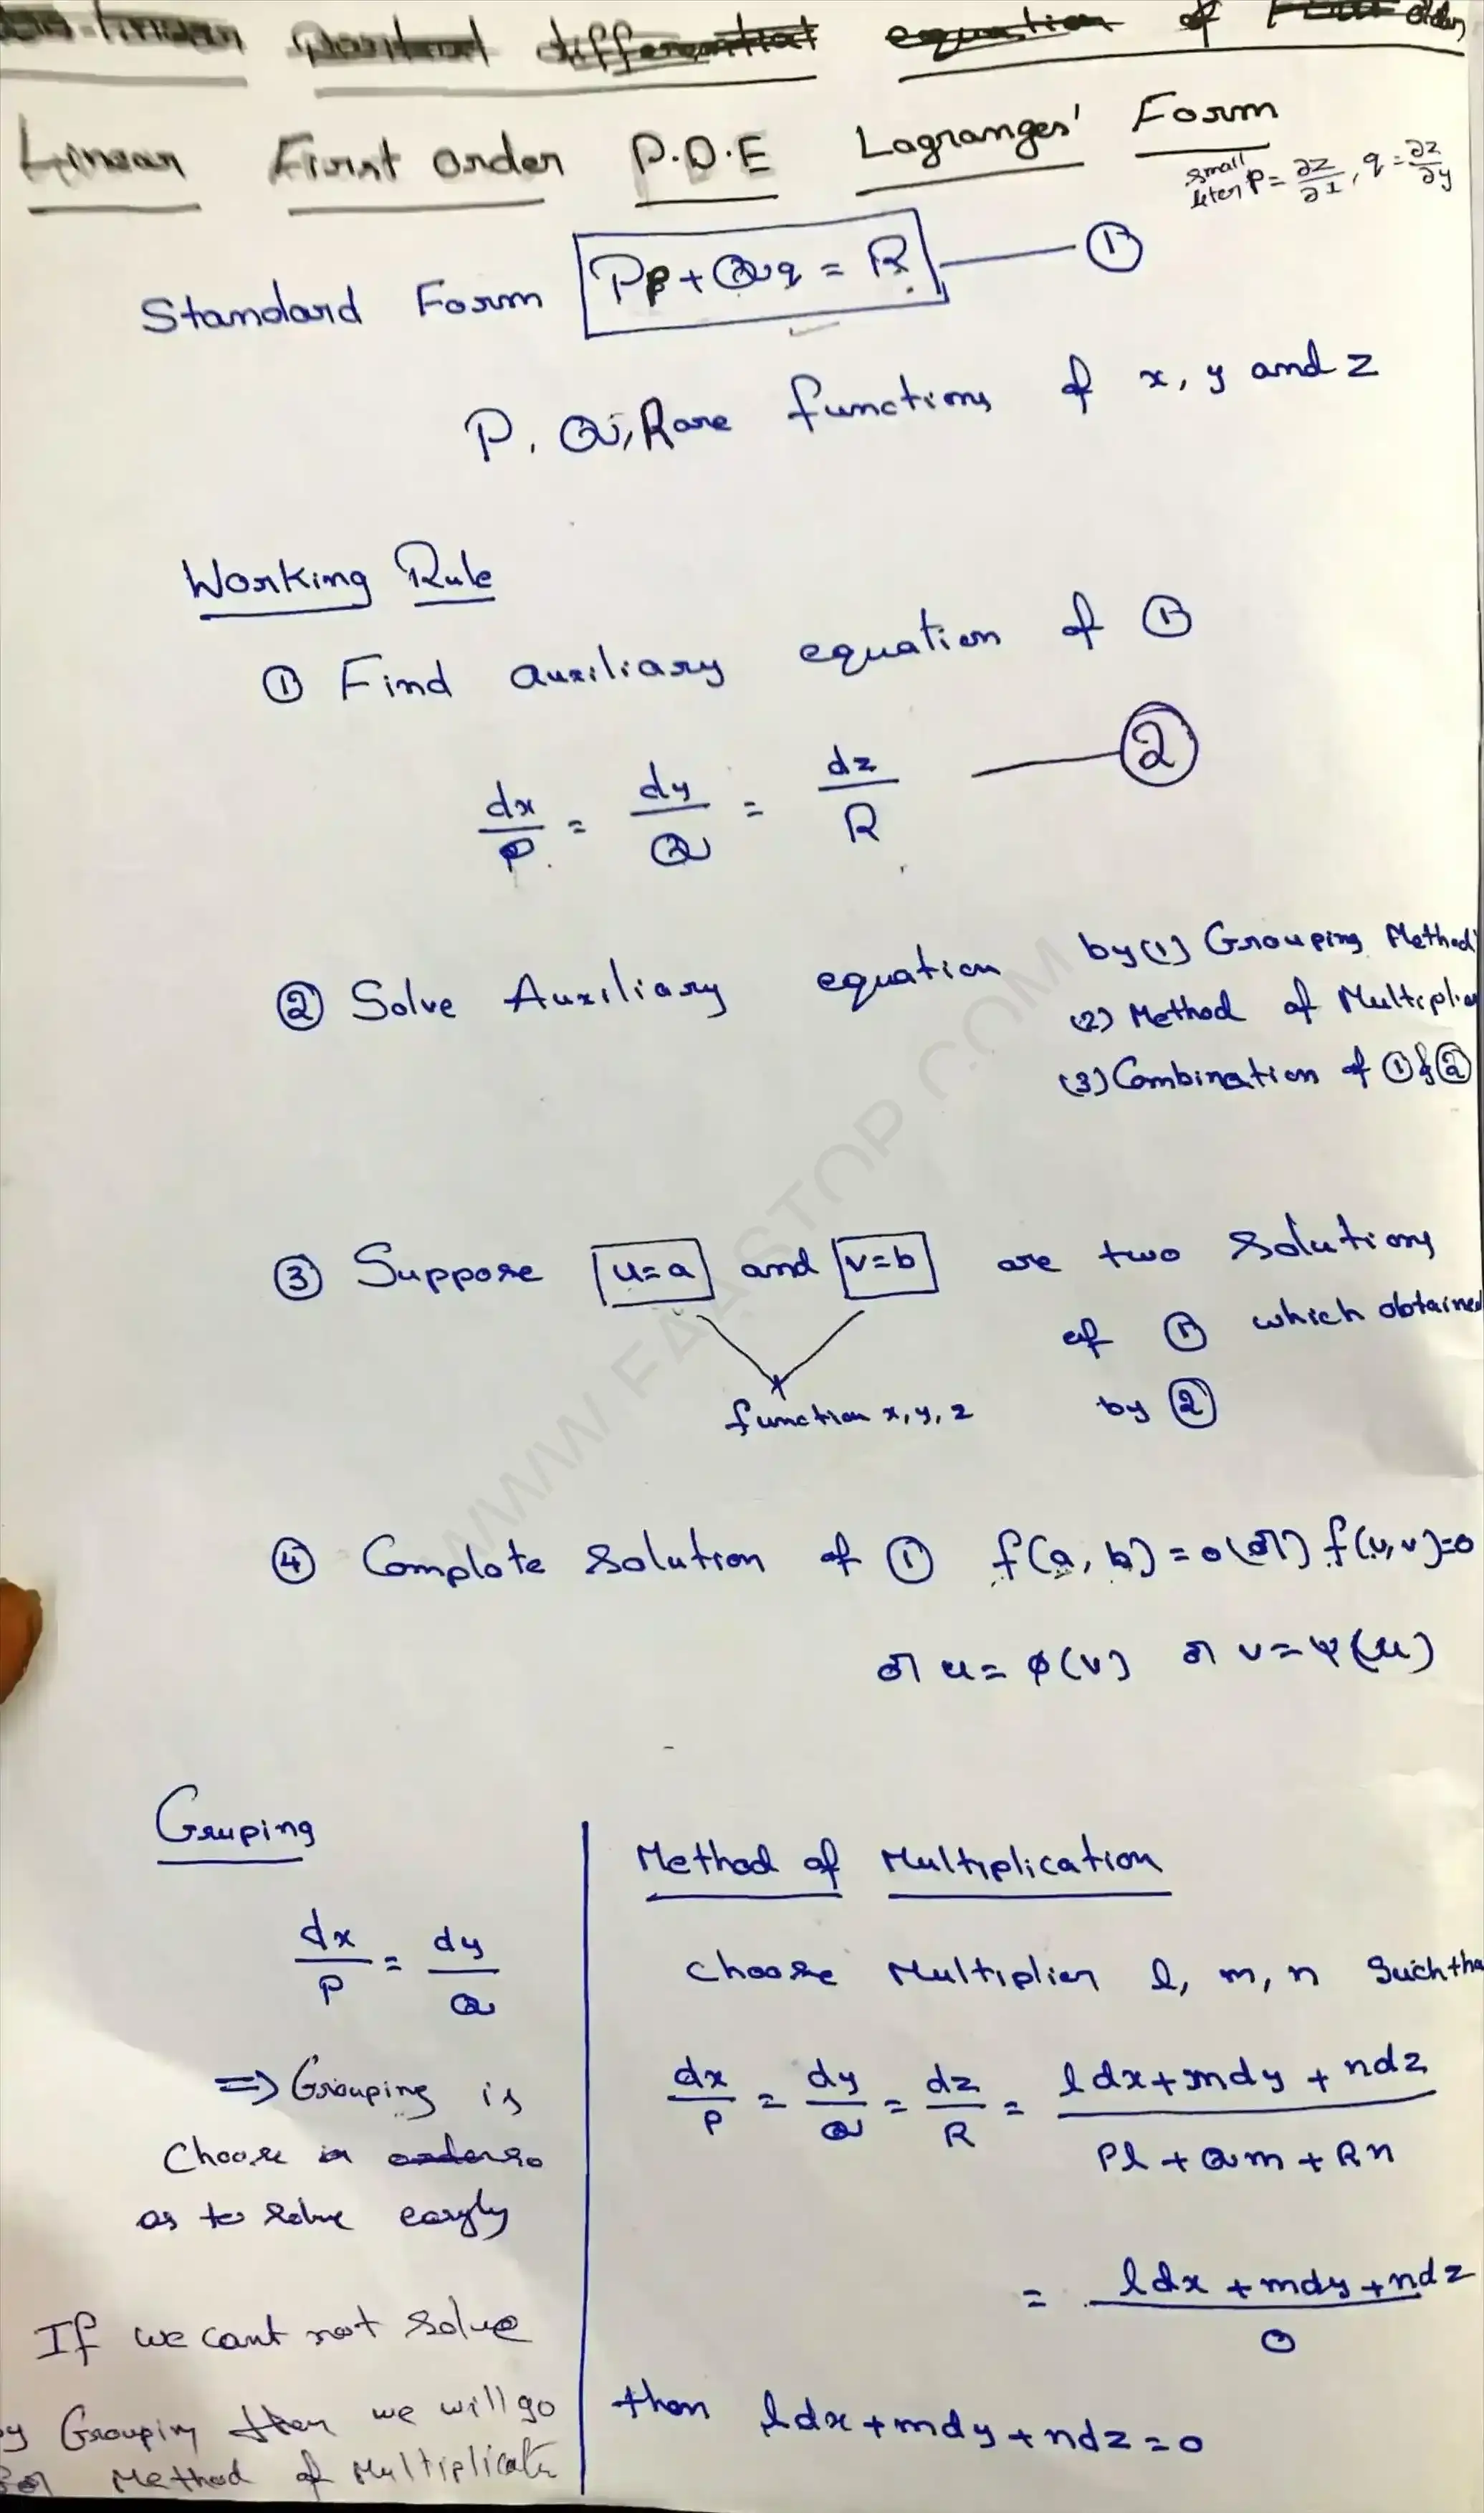 Linear partial differential equation of First order
Linear First order P.D.E Lagranges' Form
small leter p = ∂z/∂x, q = ∂z/∂y
Standard Form Pp + Qq = R — ①
P, Q, R are functions of x, y and z
Working Rule
① Find auxiliary equation of ①
dx/P = dy/Q = dz/R — ②
② Solve Auxiliary equation by (1) Grouping Method
(2) Method of Multiplier
(3) Combination of ① & ②
③ Suppose u=a and v=b are two solutions
of ① which obtained
function x, y, z by ②
④ Complete solution of ① f(a, b) = 0 (or) f(u,v)=0
or u = φ(v) or v = ψ(u)
Gruping
dx/P = dy/Q
⇒ Grouping is
choose in order so
as to solve easyly
If we cant not solve
by Grouping then we will go
for Method of Multiplicate
Method of Multiplication
choose Multiplier l, m, n such tha
dx/P = dy/Q = dz/R = ldx+mdy+ndz / Pl+Qm+Rn
= ldx+mdy+ndz / 0
then ldx+mdy+ndz=0
WWW.FAASTOP.COM